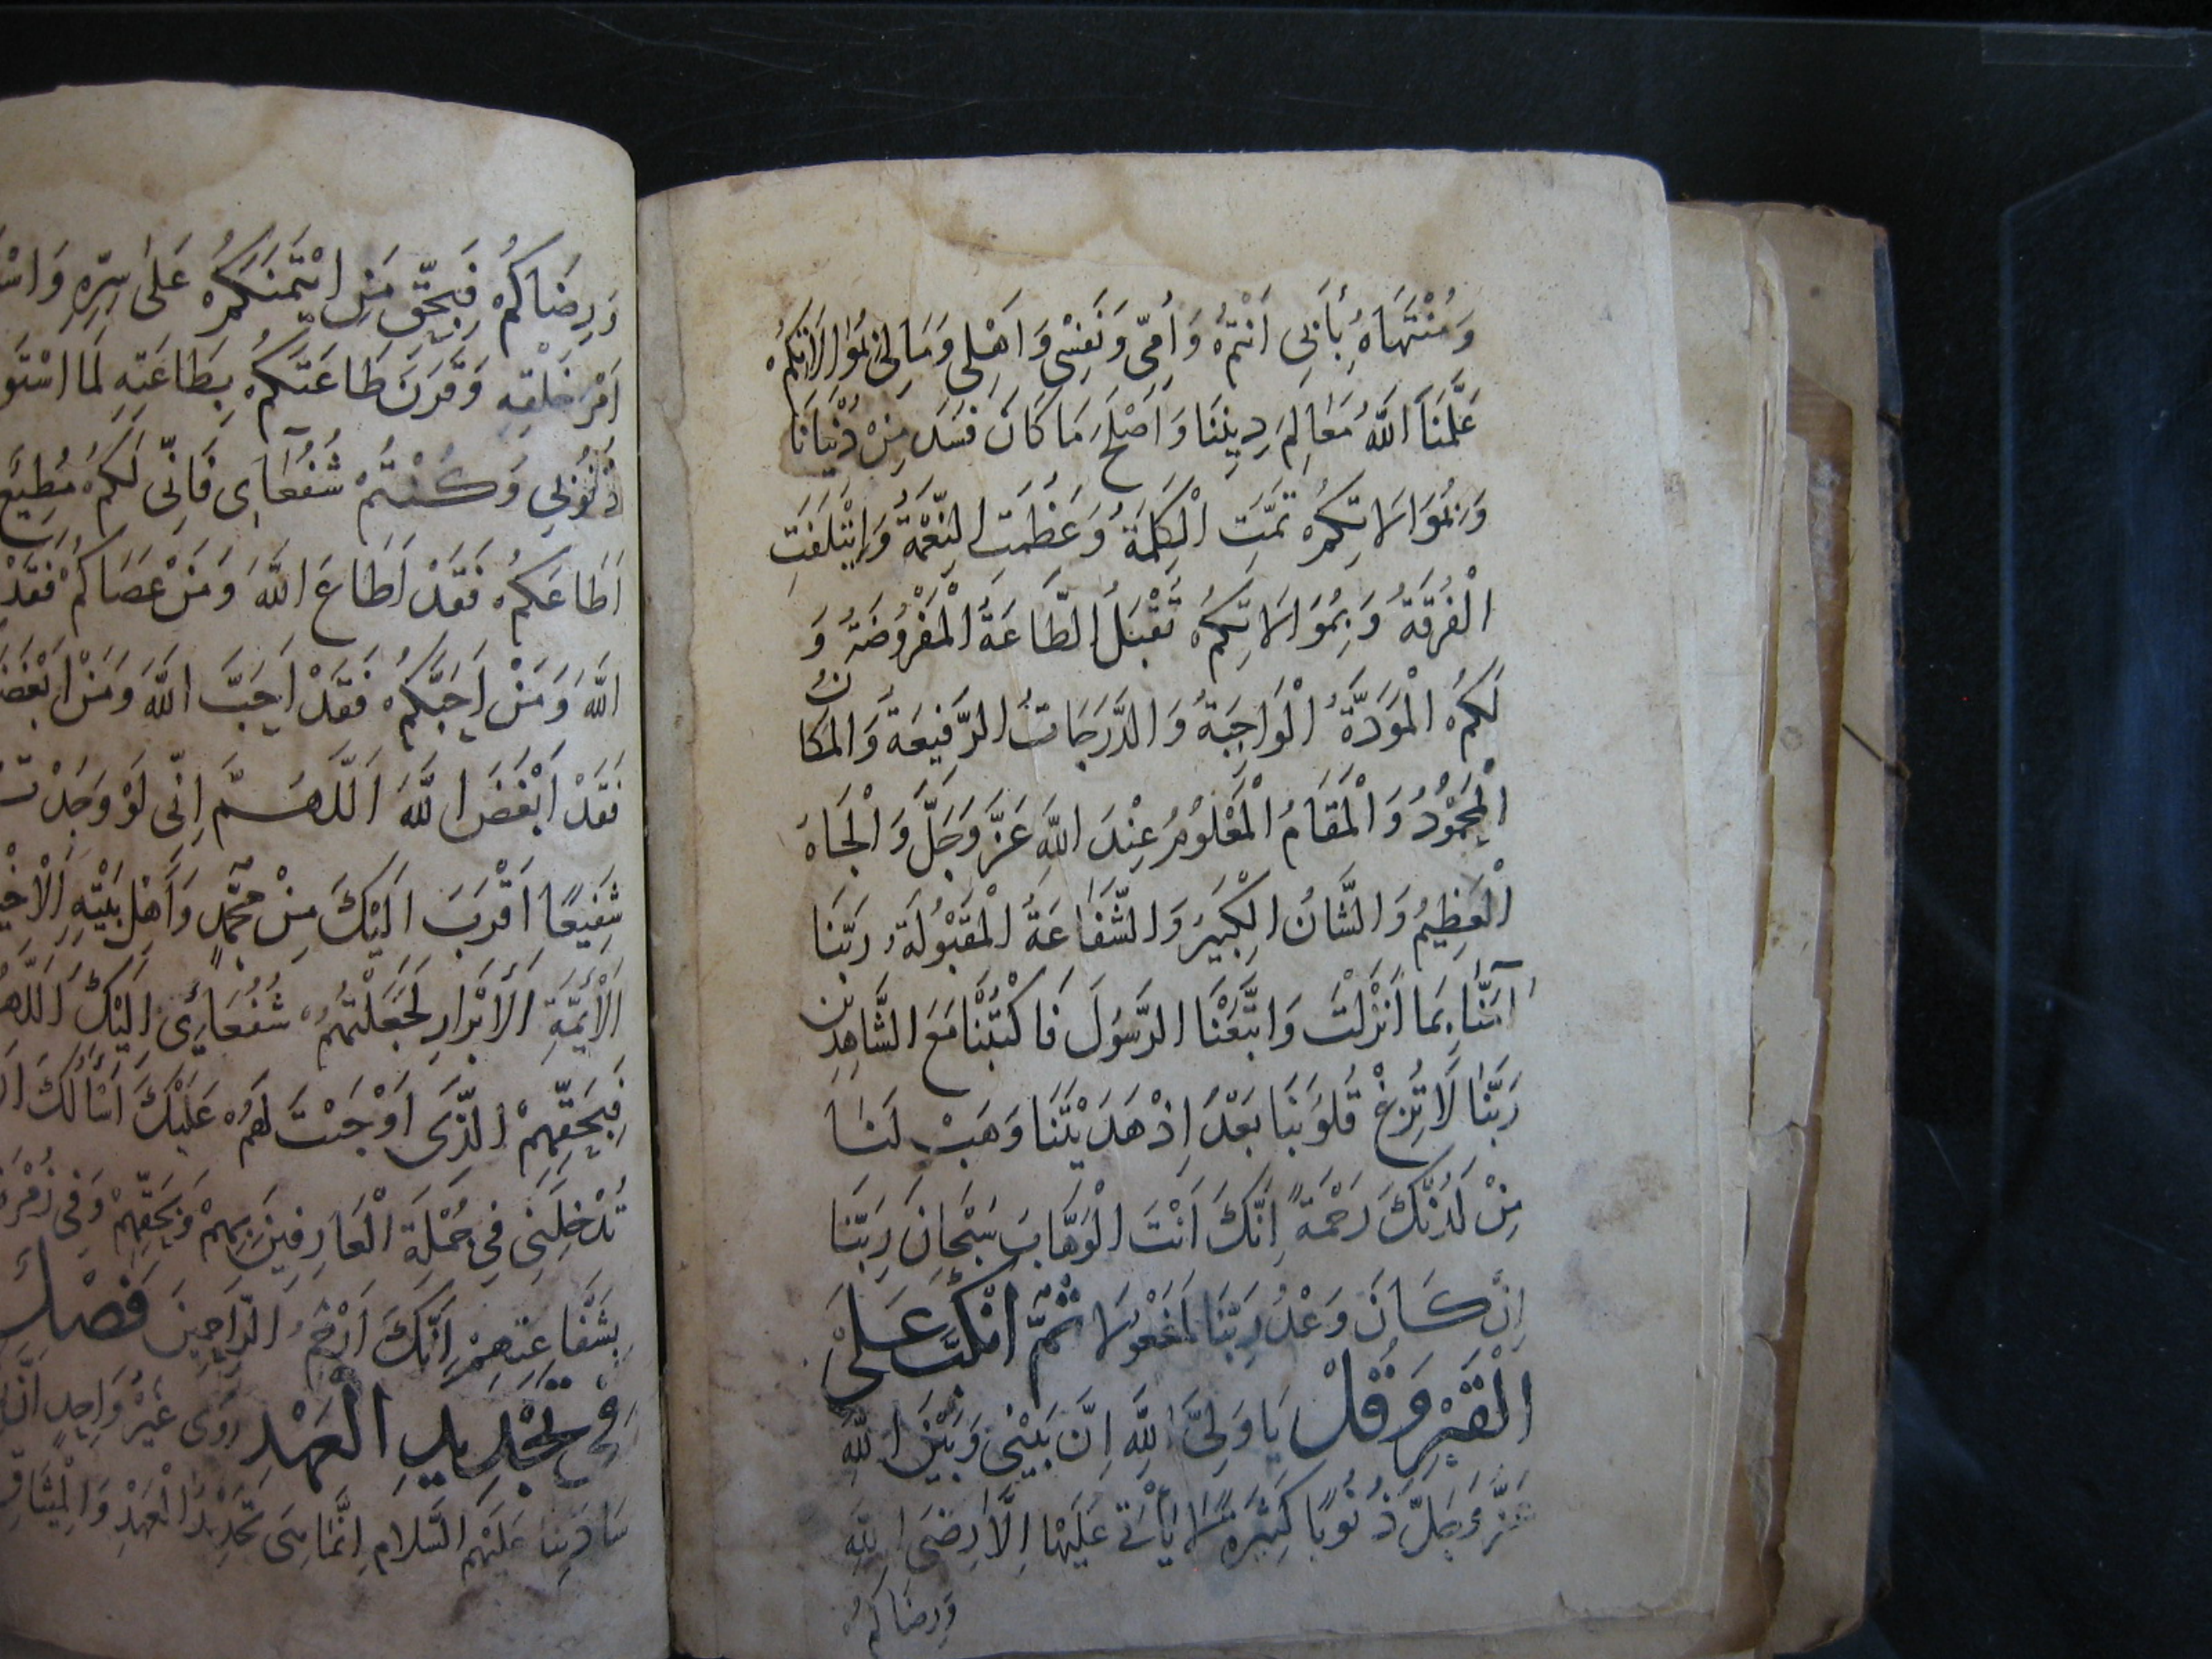 وَمُنْتَهَاهُ بِأَبِي اَنْتُمْ وَاُمِّي وَنَفْسِي وَاَهْلِي وَمَالِي بِمُوَالَاتِكُمْ
عَلَّمَنَا اللَّهُ مَعَالِمَ دِينِنَا وَاَصْلَحَ مَا كَانَ فَسَدَ مِنْ دُنْيَانَا
وَبِمُوَالَاتِكُمْ تَمَّتِ الْكَلِمَةُ وَعَظُمَتِ النِّعْمَةُ وَايْتَلَفَتِ
الْفُرْقَةُ وَبِمُوَالَاتِكُمْ تُقْبَلُ الطَّاعَةُ الْمَفْرُوضَةُ وَ
لَكُمُ الْمَوَدَّةُ الْوَاجِبَةُ وَالدَّرَجَاتُ الرَّفِيعَةُ وَالْمَكَانُ
الْمَحْمُودُ وَالْمَقَامُ الْمَعْلُومُ عِنْدَ اللَّهِ عَزَّ وَجَلَّ وَالْجَاهُ
الْعَظِيمُ وَالشَّانُ الْكَبِيرُ وَالشَّفَاعَةُ الْمَقْبُولَةُ رَبَّنَا
آمَنَّا بِمَا اَنْزَلْتَ وَاتَّبَعْنَا الرَّسُولَ فَاكْتُبْنَا مَعَ الشَّاهِدِينَ
رَبَّنَا لَا تُزِغْ قُلُوبَنَا بَعْدَ اِذْ هَدَيْتَنَا وَهَبْ لَنَا
مِنْ لَدُنْكَ رَحْمَةً اِنَّكَ اَنْتَ الْوَهَّابُ سُبْحَانَ رَبِّنَا
اِنْ كَانَ وَعْدُ رَبِّنَا لَمَفْعُولًا ثُمَّ انْكَبَّ عَلَى
الْقَبْرِ وَقُلْ يَا وَلِيَّ اللَّهِ اِنَّ بَيْنِي وَبَيْنَ اللَّهِ
عَزَّ وَجَلَّ ذُنُوبًا كَثِيرَةً لَا يَأْتِي عَلَيْهَا اِلَّا رِضَى اللَّهِ
وَرِضَاكُمْ
وَرِضَاكُمْ فَبِحَقِّ مَنِ ائْتَمَنَكُمْ عَلَى سِرِّهِ
اَمْرَ خَلْقِهِ وَقَرَنَ طَاعَتَكُمْ بِطَاعَتِهِ لَمَا
ذُنُوبِي وَكُنْتُمْ شُفَعَاي فَاِنِّي لَكُمْ مُطِيعٌ
اَطَاعَكُمْ فَقَدْ اَطَاعَ اللَّهَ وَمَنْ عَصَاكُمْ فَقَدْ
اللَّهَ وَمَنْ اَحَبَّكُمْ فَقَدْ اَحَبَّ اللَّهَ وَمَنْ
فَقَدْ اَبْغَضَ اللَّهَ اَللَّهُمَّ اِنِّي لَوْ وَجَدْتُ
شَفِيعًا اَقْرَبَ اِلَيْكَ مِنْ مُحَمَّدٍ وَاَهْلِ بَيْتِهِ
الْاَئِمَّةِ الْاَبْرَارِ لَجَعَلْتُهُمْ شُفَعَائِي اِلَيْكَ
فَبِحَقِّهِمُ الَّذِي اَوْجَبْتَ لَهُمْ عَلَيْكَ اَسْأَلُكَ
تُدْخِلَنِي فِي جُمْلَةِ الْعَارِفِينَ بِهِمْ وَبِحَقِّهِمْ وَفِي
بِشَفَاعَتِهِمْ اِنَّكَ اَرْحَمُ الرَّاحِمِينَ فَصْلٌ
فِي تَجْدِيدِ الْعَهْدِ رَوَى غَيْرُ وَاحِدٍ
سَادَتِنَا عَلَيْهِمُ السَّلَامُ اِنَّمَا تَجْدِيدُ الْعَهْدِ